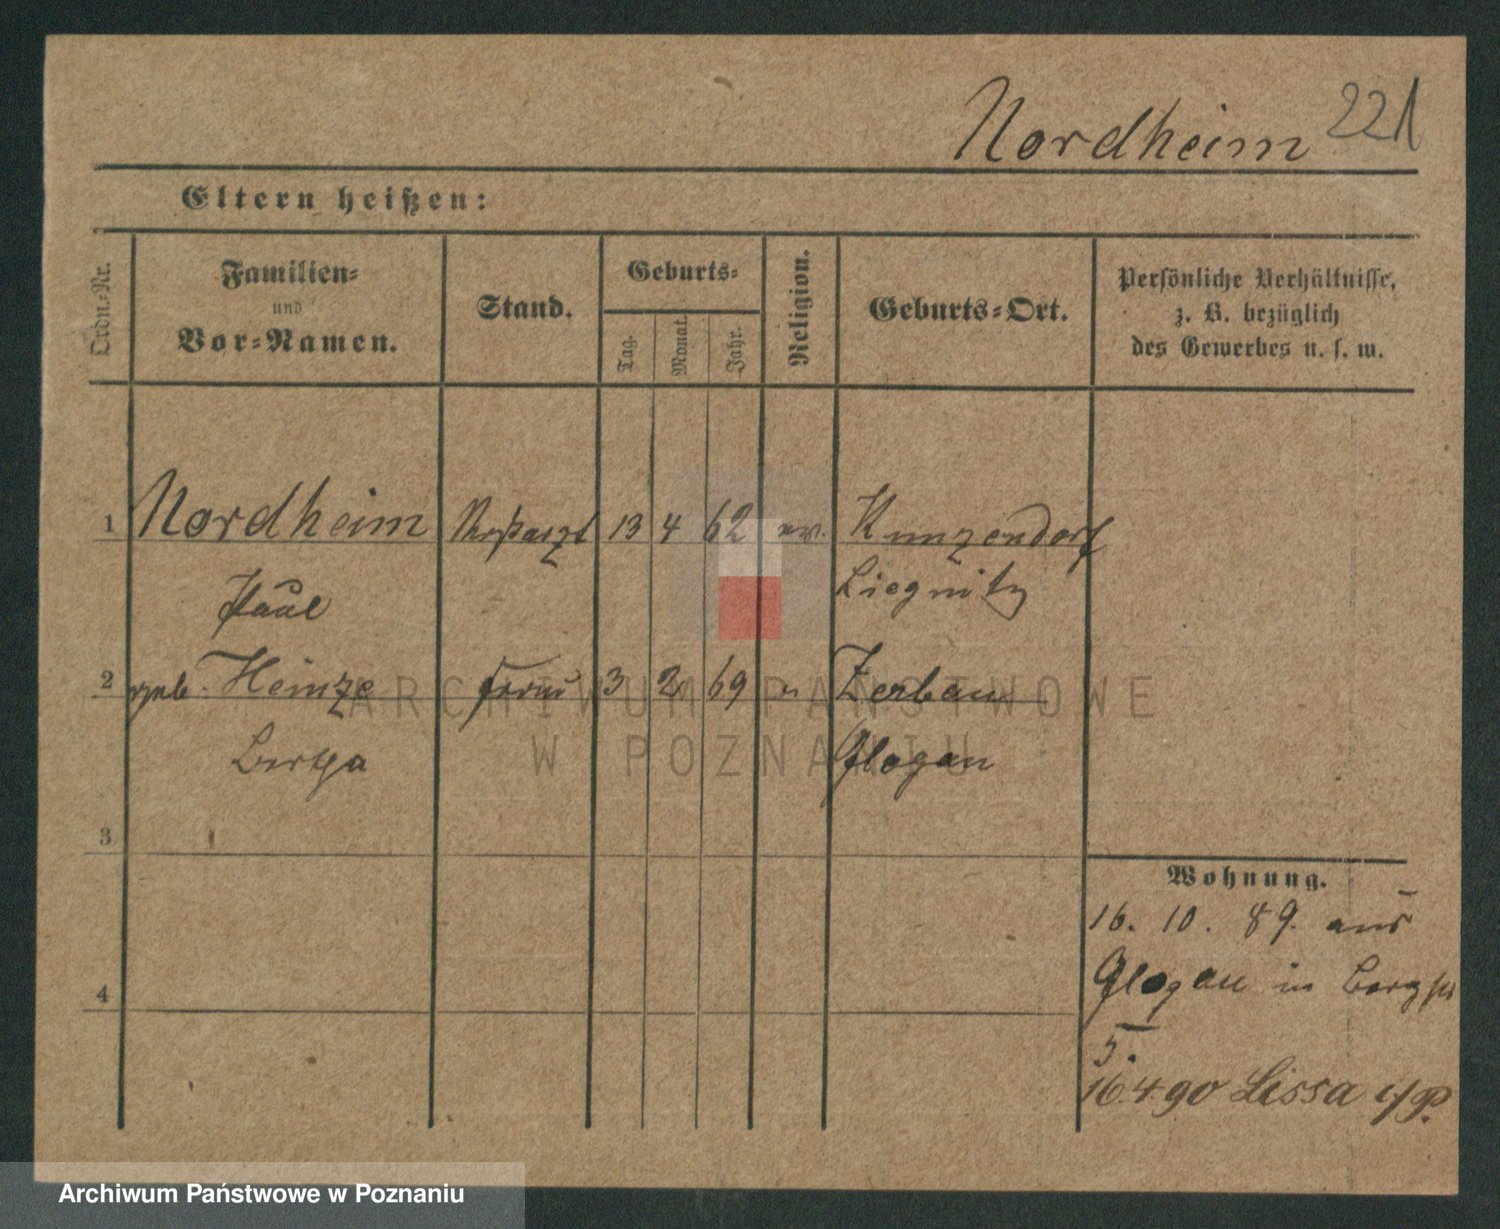 Nordheim 221
Eltern heißen:
Ordn.-Nr.
Familien-
und
Vor-Namen.
Stand.
Geburts-
Tag.
Monat.
Jahr.
Religion.
Geburts-Ort.
Persönliche Verhältnisse,
z. B. bezüglich
des Gewerbes u. s. w.
1 Nordheim Roßarzt 13 4 62 ev. Kunzendorf
Paul Liegnitz
2 geb. Heinze Frau 3 2 69 " Zerbau
Bertha Glogau
3
4
Wohnung.
16. 10. 89. aus
Glogau in Bergstr
5.
16.4.90 Lissa i/P.
ARCHIWUM PAŃSTWOWE
W POZNANIU
Archiwum Państwowe w Poznaniu